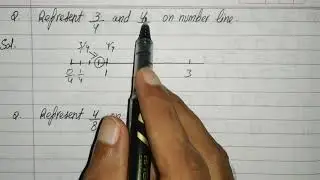 Q. Represent 3/4 and on number line.
Sol.
3/4 4/4
0/4 1/4 1 3
Q. Represent 4/8 on